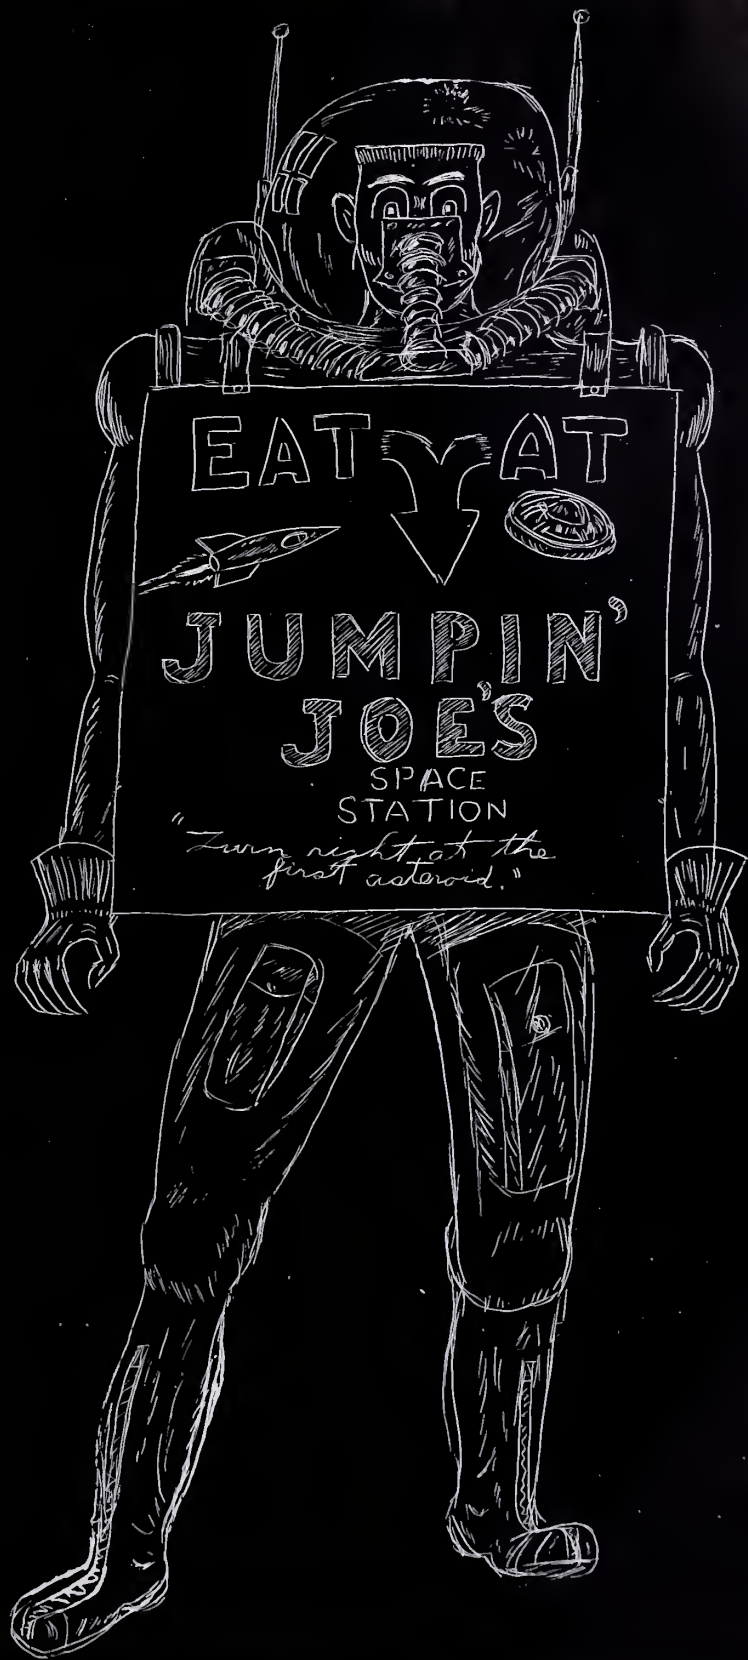 EAT AT
JUMPIN'
JOE'S
SPACE
STATION
"Turn right at the
first asteroid."